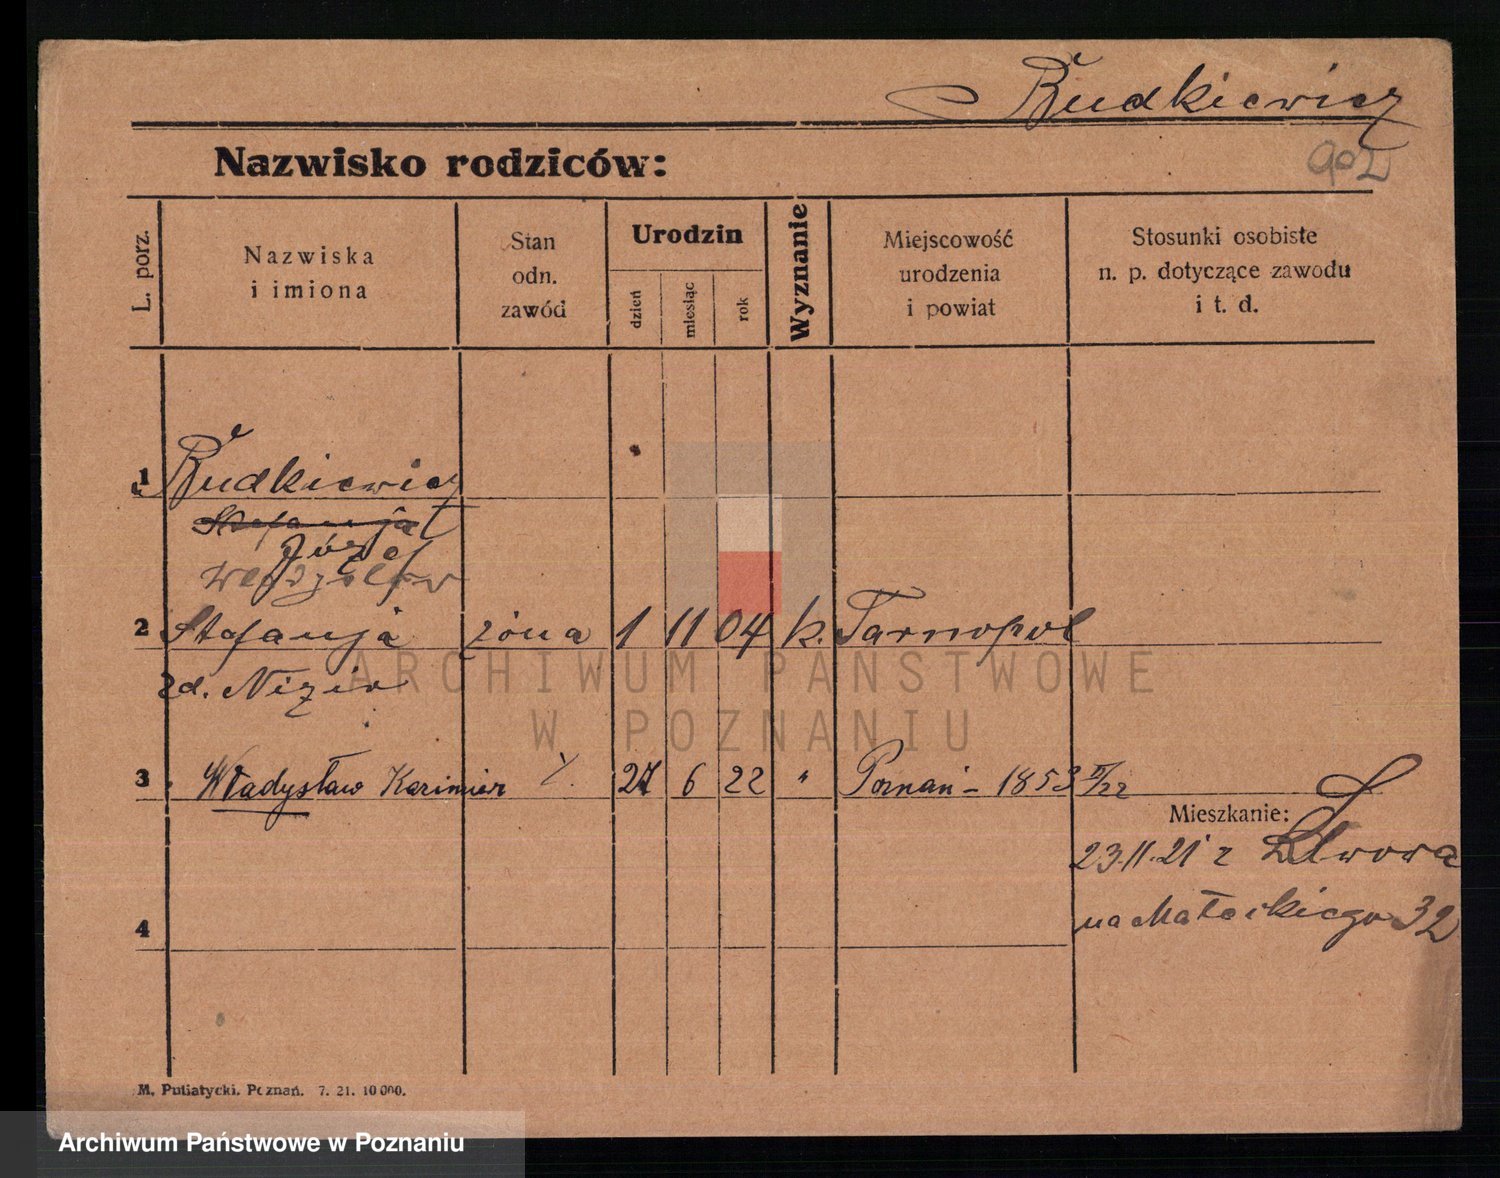 Budkiewicz
902
Nazwisko rodziców:
L. porz.
Nazwiska
i imiona
Stan
odn.
zawód
Urodzin
dzień
miesiąc
rok
Wyznanie
Miejscowość
urodzenia
i powiat
Stosunki osobiste
n. p. dotyczące zawodu
i t. d.
1 Budkiewicz
Stefanja
Józef
2 Stefanja żona 1 11 04 k. Tarnopol
zd. Nizio
3 Władysław Kazimier 27 6 22 " Poznań - 1853 /22
Mieszkanie:
23.11.21 z Lwowa
na Małeckiego 32
4
M. Putiatycki. Poznań. 7. 21. 10 000.
ARCHIWUM PAŃSTWOWE
W POZNANIU
Archiwum Państwowe w Poznaniu